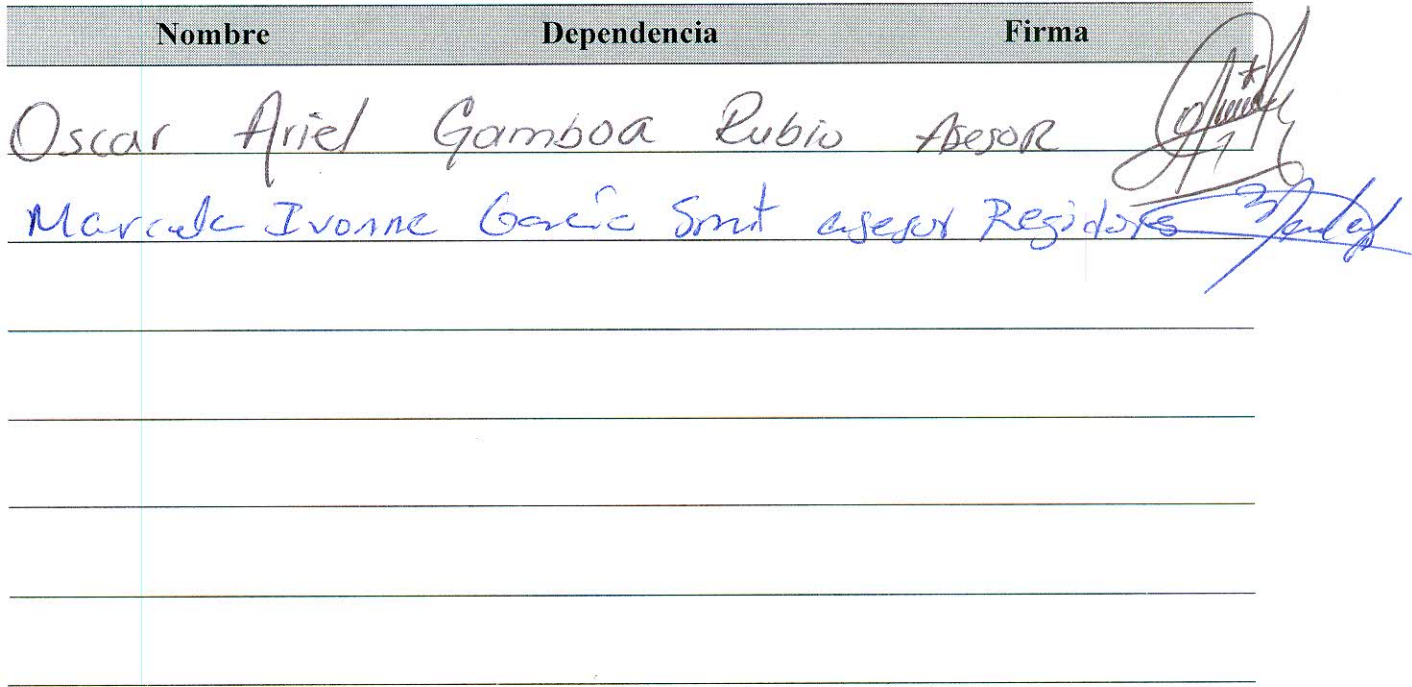 Nombre Dependencia Firma
Oscar Ariel Gamboa Rubio Asesor
Marcela Ivonne García asesor Regidores